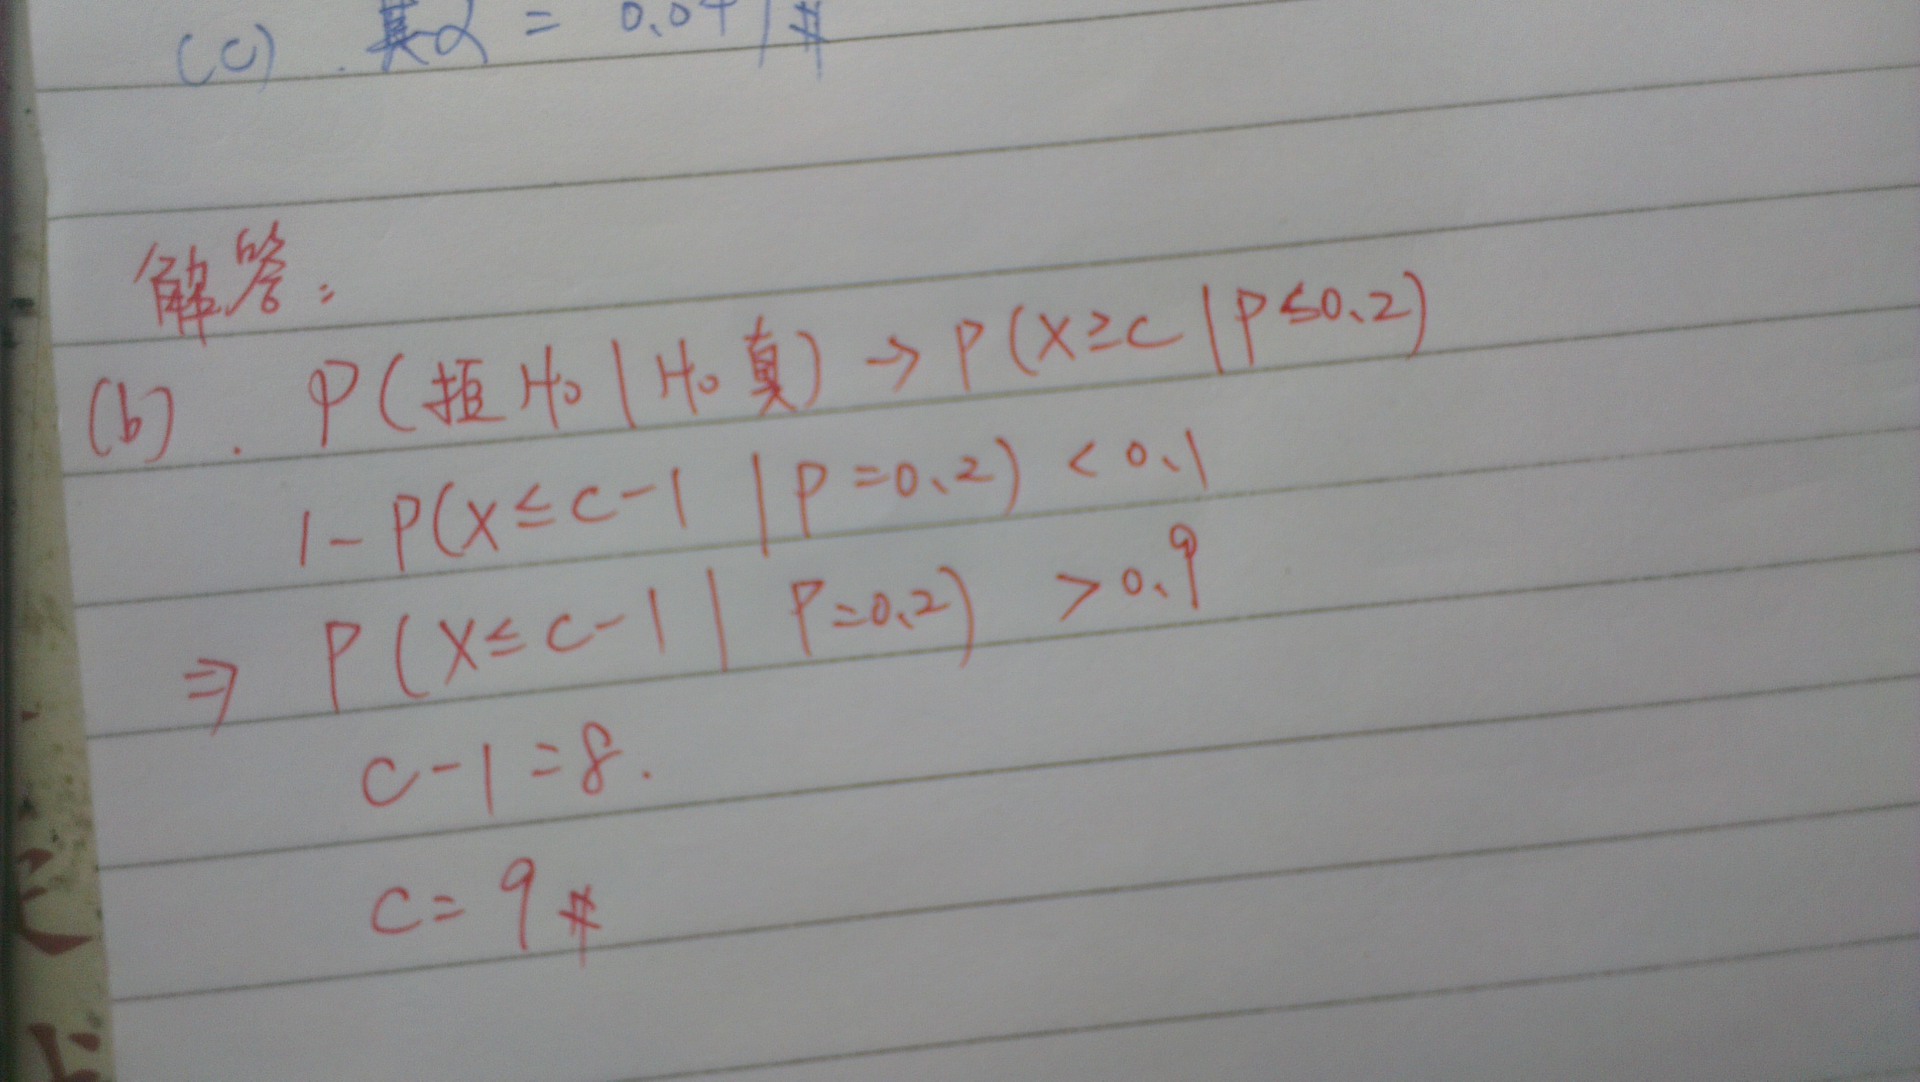 (c). 其α = 0.04
解答:
(b). P(拒H₀|H₀真) → P(X≥c|P≤0.2)
1-P(X≤c-1|P=0.2) < 0.1
⇒ P(X≤c-1|P=0.2) > 0.9
c-1=8.
c=9#